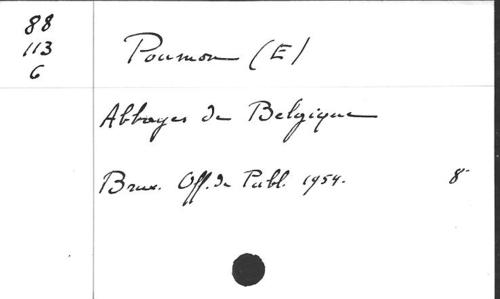 88
113
6
Poumon (E)
Abbayes de Belgique
Brux. Off. de Publ. 1954. 8°